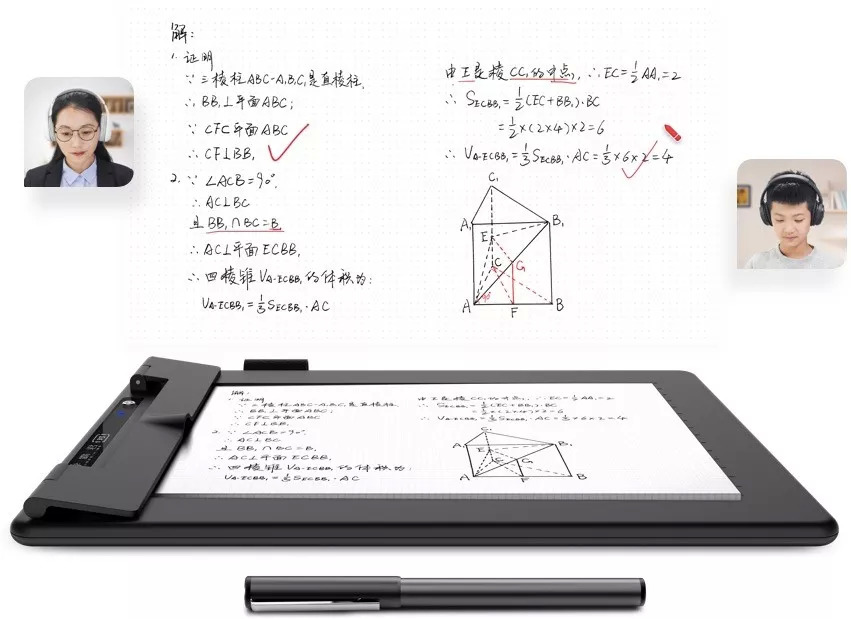 解:
1. 证明
∵ 三棱柱ABC-A₁B₁C₁是直棱柱,
∴ BB₁⊥平面ABC;
∵ CF⊂平面ABC
∴ CF⊥BB₁
2. ∵ ∠ACB=90°,
∴ AC⊥BC
且 BB₁∩BC=B,
∴ AC⊥平面ECBB₁
∴ 四棱锥VA-ECBB₁的体积为:
VA-ECBB₁=⅓SECBB₁·AC
由E是棱CC₁的中点, ∴ EC=½AA₁=2
∴ SECBB₁=½(EC+BB₁)·BC
=½×(2×4)×2=6
∴ VA-ECBB₁=⅓SECBB₁·AC=⅓×6×2=4
C₁
A₁
B₁
E
C
G
A
F
B
解:
1. 证明
∵ 三棱柱ABC-A₁B₁C₁是直棱柱
∴ BB₁⊥平面ABC;
∵ CF⊂平面ABC
∴ CF⊥BB₁
2. ∵ ∠ACB=90°,
∴ AC⊥BC
且 BB₁∩BC=B,
∴ AC⊥平面ECBB₁
∴ 四棱锥VA-ECBB₁的体积为:
VA-ECBB₁=⅓SECBB₁·AC
由E是棱CC₁的中点, ∴ EC=½AA₁=2
∴ SECBB₁=½(EC+BB₁)·BC
=½×(2×4)×2=6
∴ VA-ECBB₁=⅓SECBB₁·AC=⅓×6×2=4
C₁
A₁
B₁
E
C
G
A
F
B